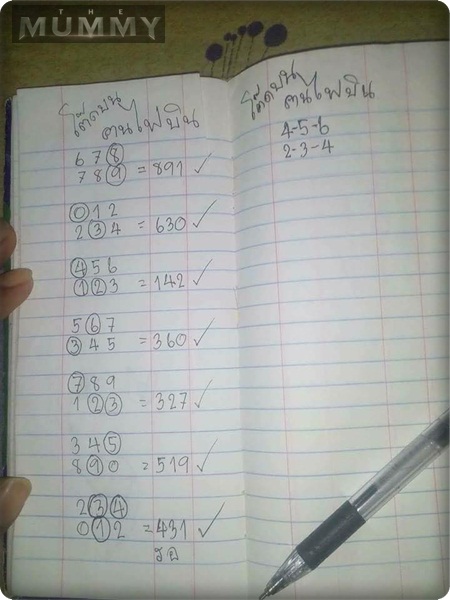 THE
MUMMY
โต๊ดบน
คนไฟบิน
6 7 8
7 8 9 = 891 ✓
0 1 2
2 3 4 = 630 ✓
4 5 6
1 2 3 = 142 ✓
5 6 7
3 4 5 = 360 ✓
7 8 9
1 2 3 = 327 ✓
3 4 5
8 9 0 = 519 ✓
2 3 4
0 1 2 = 431 ✓
โต๊ดบน
คนไฟบิน
4-5-6
2-3-4